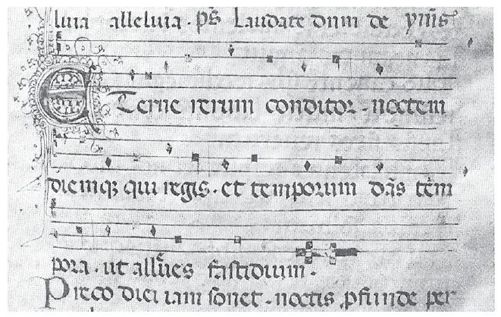 luia alleluia · ps̄ Laudate dnm de ym̄s
Eterne rerum conditor · noctem
diemq; qui regis · et temporum dās tēm
pora · ut allēues fastidium ·
Preco diei iam sonet · noctis ꝓfunde per